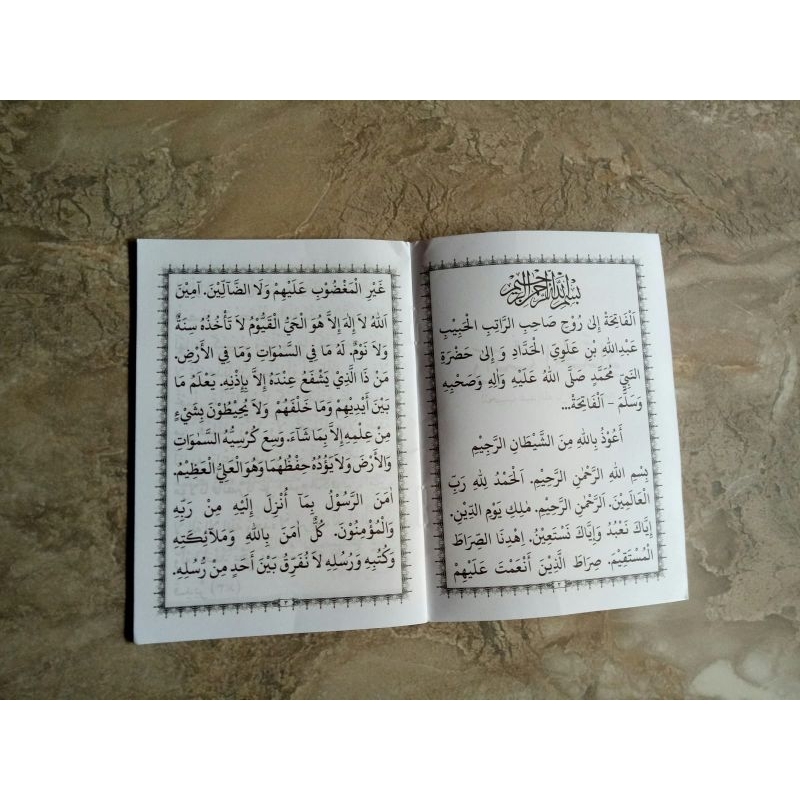 بِسْمِ اللهِ الرَّحْمٰنِ الرَّحِيْمِ
اَلْفَاتِحَةُ إِلَى رُوْحِ صَاحِبِ الرَّاتِبِ الْحَبِيْبِ
عَبْدِاللهِ بْنِ عَلَوِيِّ الْحَدَّادِ وَ إِلَى حَضْرَةِ
النَّبِيِّ مُحَمَّدٍ صَلَّى اللهُ عَلَيْهِ وَاٰلِهِ وَصَحْبِهِ
وَسَلَّمَ – اَلْفَاتِحَةُ...
أَعُوْذُ بِاللهِ مِنَ الشَّيْطَانِ الرَّجِيْمِ
بِسْمِ اللهِ الرَّحْمٰنِ الرَّحِيْمِ. اَلْحَمْدُ لِلّٰهِ رَبِّ
الْعَالَمِيْنَ. اَلرَّحْمٰنِ الرَّحِيْمِ. مٰلِكِ يَوْمِ الدِّيْنِ.
إِيَّاكَ نَعْبُدُ وَإِيَّاكَ نَسْتَعِيْنُ. اِهْدِنَا الصِّرَاطَ
الْمُسْتَقِيْمَ. صِرَاطَ الَّذِيْنَ أَنْعَمْتَ عَلَيْهِمْ
٢
غَيْرِ الْمَغْضُوْبِ عَلَيْهِمْ وَلَا الضَّآلِّيْنَ. اٰمِيْنَ
اَللهُ لاَ إِلٰهَ إِلاَّ هُوَ الْحَيُّ الْقَيُّوْمُ لاَ تَأْخُذُهُ سِنَةٌ
وَلاَ نَوْمٌ. لَهُ مَا فِي السَّمٰوَاتِ وَمَا فِي الأَرْضِ.
مَنْ ذَا الَّذِيْ يَشْفَعُ عِنْدَهُ إِلاَّ بِإِذْنِهِ. يَعْلَمُ مَا
بَيْنَ أَيْدِيْهِمْ وَمَا خَلْفَهُمْ وَلاَ يُحِيْطُوْنَ بِشَيْءٍ
مِنْ عِلْمِهِ إِلاَّ بِمَا شَآءَ. وَسِعَ كُرْسِيُّهُ السَّمٰوَاتِ
وَالأَرْضَ وَلاَ يَؤُدُهُ حِفْظُهُمَا وَهُوَ الْعَلِيُّ الْعَظِيْمُ.
اٰمَنَ الرَّسُوْلُ بِمَآ أُنْزِلَ إِلَيْهِ مِنْ رَبِّهِ
وَالْمُؤْمِنُوْنَ. كُلٌّ اٰمَنَ بِاللهِ وَمَلآئِكَتِهِ
وَكُتُبِهِ وَرُسُلِهِ لاَ نُفَرِّقُ بَيْنَ أَحَدٍ مِنْ رُسُلِهِ.
٣